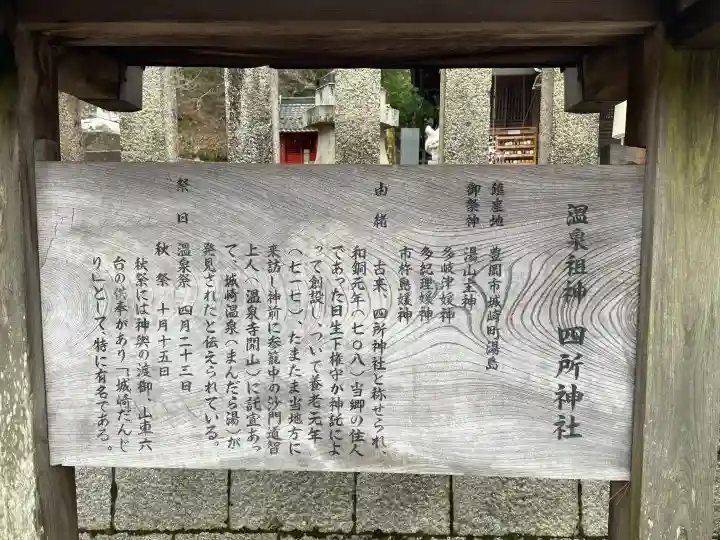 温泉祖神 四所神社
鎮座地 豊岡市城崎町湯島
御祭神 湯山主神
多岐津媛神
多紀理媛神
市杵島媛神
由緒
古来、四所神社と称せられ、
和銅元年（七〇八）当郷の住人
であった日生下権守が神託によ
って創設し、ついで養老元年
（七一七）、たまたま当地方に
来訪し神前に参籠中の沙門道智
上人（温泉寺開山）に託宣あっ
て、城崎温泉（まんだら湯）が
発見されたと伝えられている。
祭日 温泉祭 四月二十三日
秋祭 十月十五日
秋祭には神輿の渡御、山車六
台の供奉があり「城崎だんじ
り」として、特に有名である。